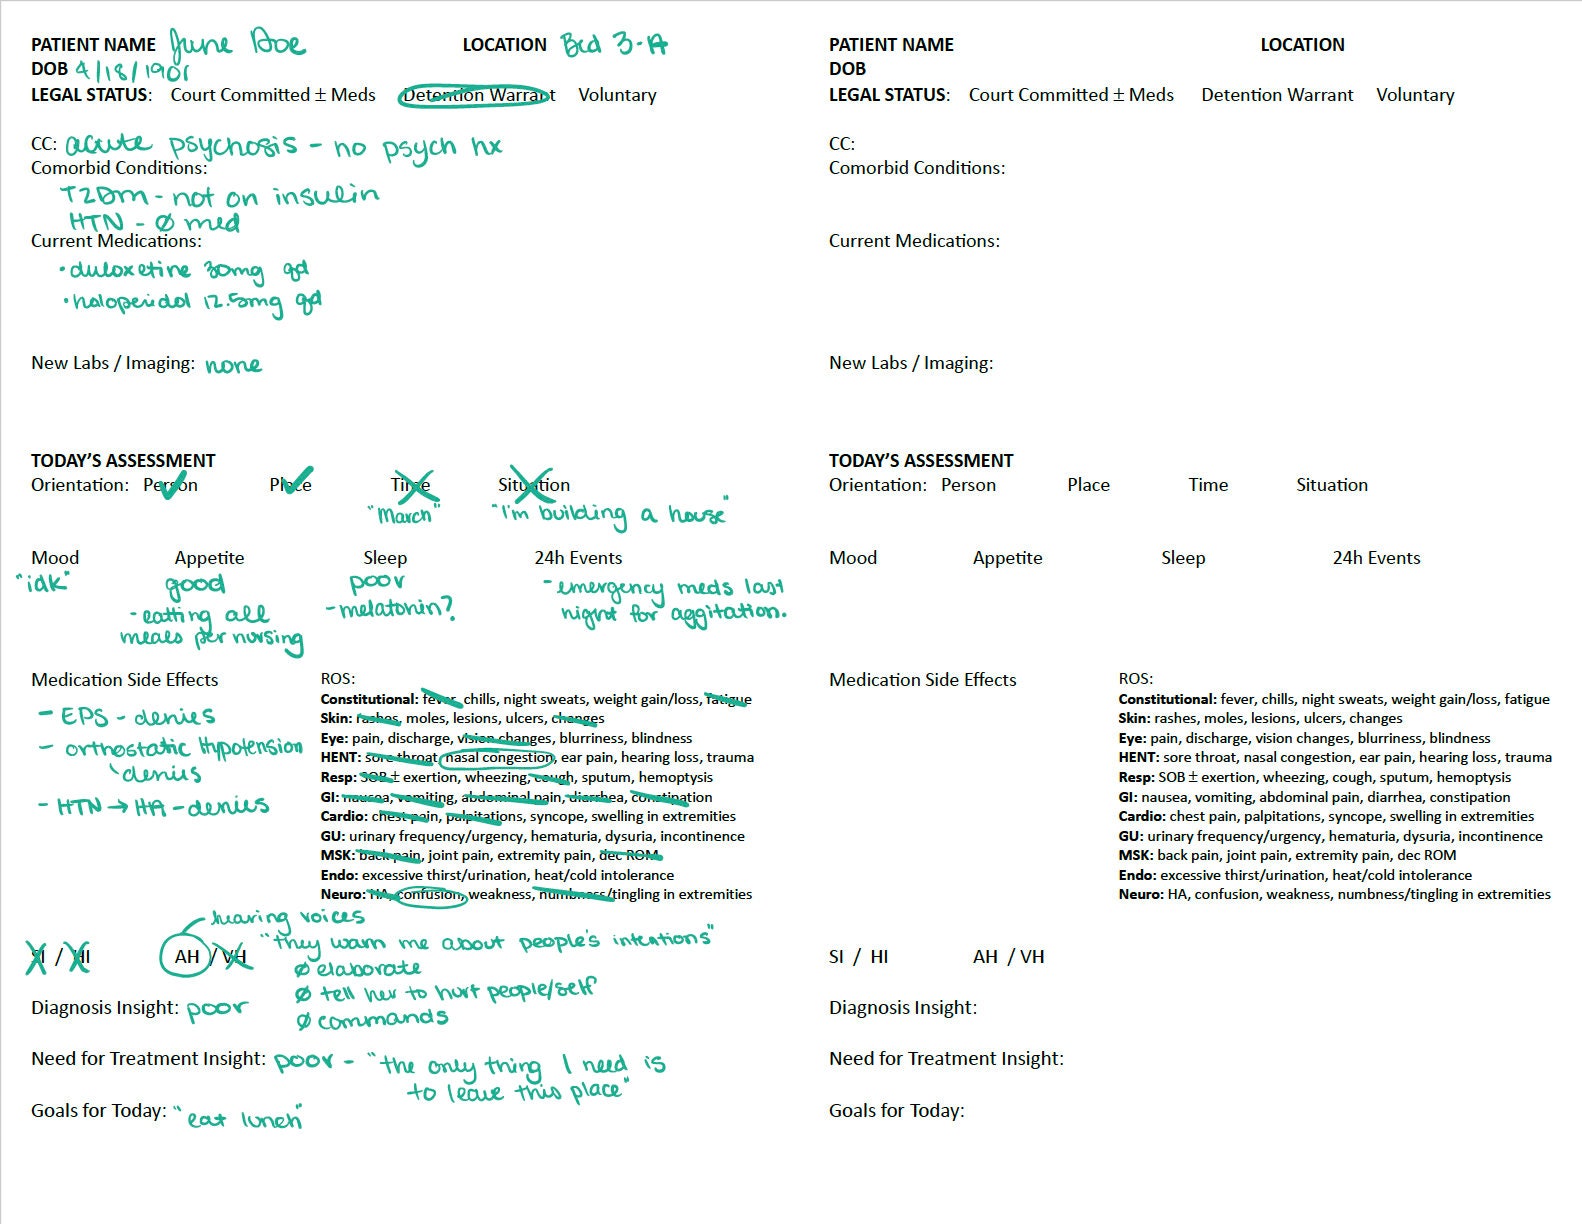 PATIENT NAME June Doe LOCATION Bed 3-A
DOB 4/18/1901
LEGAL STATUS: Court Committed ± Meds Detention Warrant Voluntary
CC: acute psychosis - no psych hx
Comorbid Conditions:
T2Dm - not on insulin
HTN - Ø med
Current Medications:
• duloxetine 30mg qd
• haloperidol 12.5mg qd
New Labs / Imaging: none
TODAY'S ASSESSMENT
Orientation: Person ✓ Place ✓ Time Situation
"March" "I'm building a house"
Mood Appetite Sleep 24h Events
"idk" good poor - emergency meds last
- eatting all - melatonin? night for aggitation.
meals per nursing
Medication Side Effects
- EPS - denies
- orthostatic Hypotension
denies
- HTN → HA - denies
ROS:
Constitutional: fever, chills, night sweats, weight gain/loss, fatigue
Skin: rashes, moles, lesions, ulcers, changes
Eye: pain, discharge, vision changes, blurriness, blindness
HENT: sore throat, nasal congestion, ear pain, hearing loss, trauma
Resp: SOB ± exertion, wheezing, cough, sputum, hemoptysis
GI: nausea, vomiting, abdominal pain, diarrhea, constipation
Cardio: chest pain, palpitations, syncope, swelling in extremities
GU: urinary frequency/urgency, hematuria, dysuria, incontinence
MSK: back pain, joint pain, extremity pain, dec ROM
Endo: excessive thirst/urination, heat/cold intolerance
Neuro: HA, confusion, weakness, numbness/tingling in extremities
hearing voices
"they warn me about people's intentions"
SI / HI AH / VH
Ø elaborate
Ø tell her to hurt people/self
Ø commands
Diagnosis Insight: poor
Need for Treatment Insight: poor - "the only thing I need is
to leave this place"
Goals for Today: "eat lunch"
PATIENT NAME LOCATION
DOB
LEGAL STATUS: Court Committed ± Meds Detention Warrant Voluntary
CC:
Comorbid Conditions:
Current Medications:
New Labs / Imaging:
TODAY'S ASSESSMENT
Orientation: Person Place Time Situation
Mood Appetite Sleep 24h Events
Medication Side Effects
ROS:
Constitutional: fever, chills, night sweats, weight gain/loss, fatigue
Skin: rashes, moles, lesions, ulcers, changes
Eye: pain, discharge, vision changes, blurriness, blindness
HENT: sore throat, nasal congestion, ear pain, hearing loss, trauma
Resp: SOB ± exertion, wheezing, cough, sputum, hemoptysis
GI: nausea, vomiting, abdominal pain, diarrhea, constipation
Cardio: chest pain, palpitations, syncope, swelling in extremities
GU: urinary frequency/urgency, hematuria, dysuria, incontinence
MSK: back pain, joint pain, extremity pain, dec ROM
Endo: excessive thirst/urination, heat/cold intolerance
Neuro: HA, confusion, weakness, numbness/tingling in extremities
SI / HI AH / VH
Diagnosis Insight:
Need for Treatment Insight:
Goals for Today: